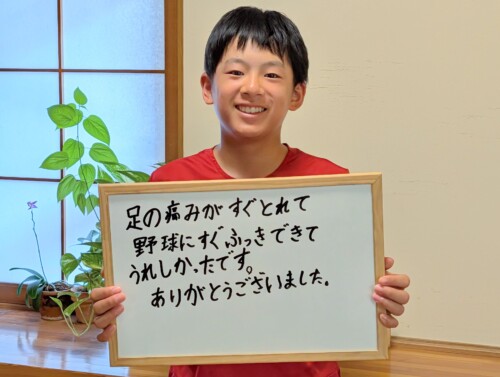 足の痛みがすぐとれて
野球にすぐふっきできて
うれしかったです。
ありがとうございました。